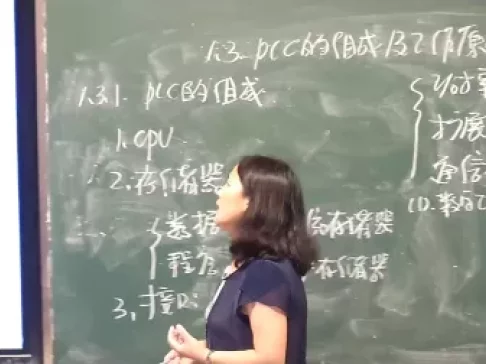 1.3. PLC的组成及工作原
1.3.1. PLC的组成
1. CPU
2. 存储器
数据 存储器
程序 存储器
3. 接口:
I/O
扩展
通信
(1).数字